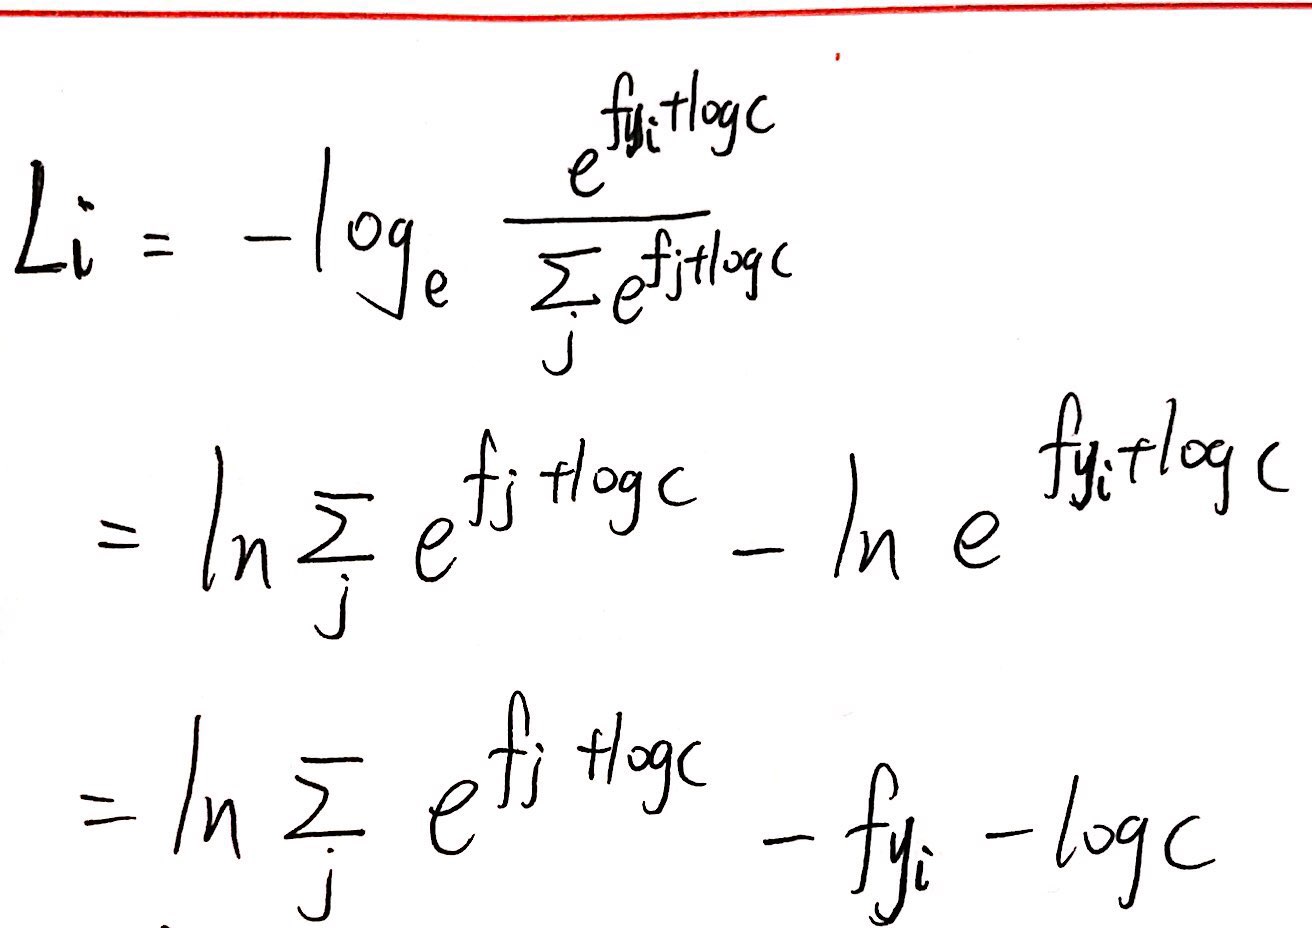 Li = -log_e \frac{e^{f_{y_i}+logc}}{\sum_j e^{f_j+logc}}
= ln \sum_j e^{f_j+logc} - ln e^{f_{y_i}+logc}
= ln \sum_j e^{f_j+logc} - f_{y_i} - logc